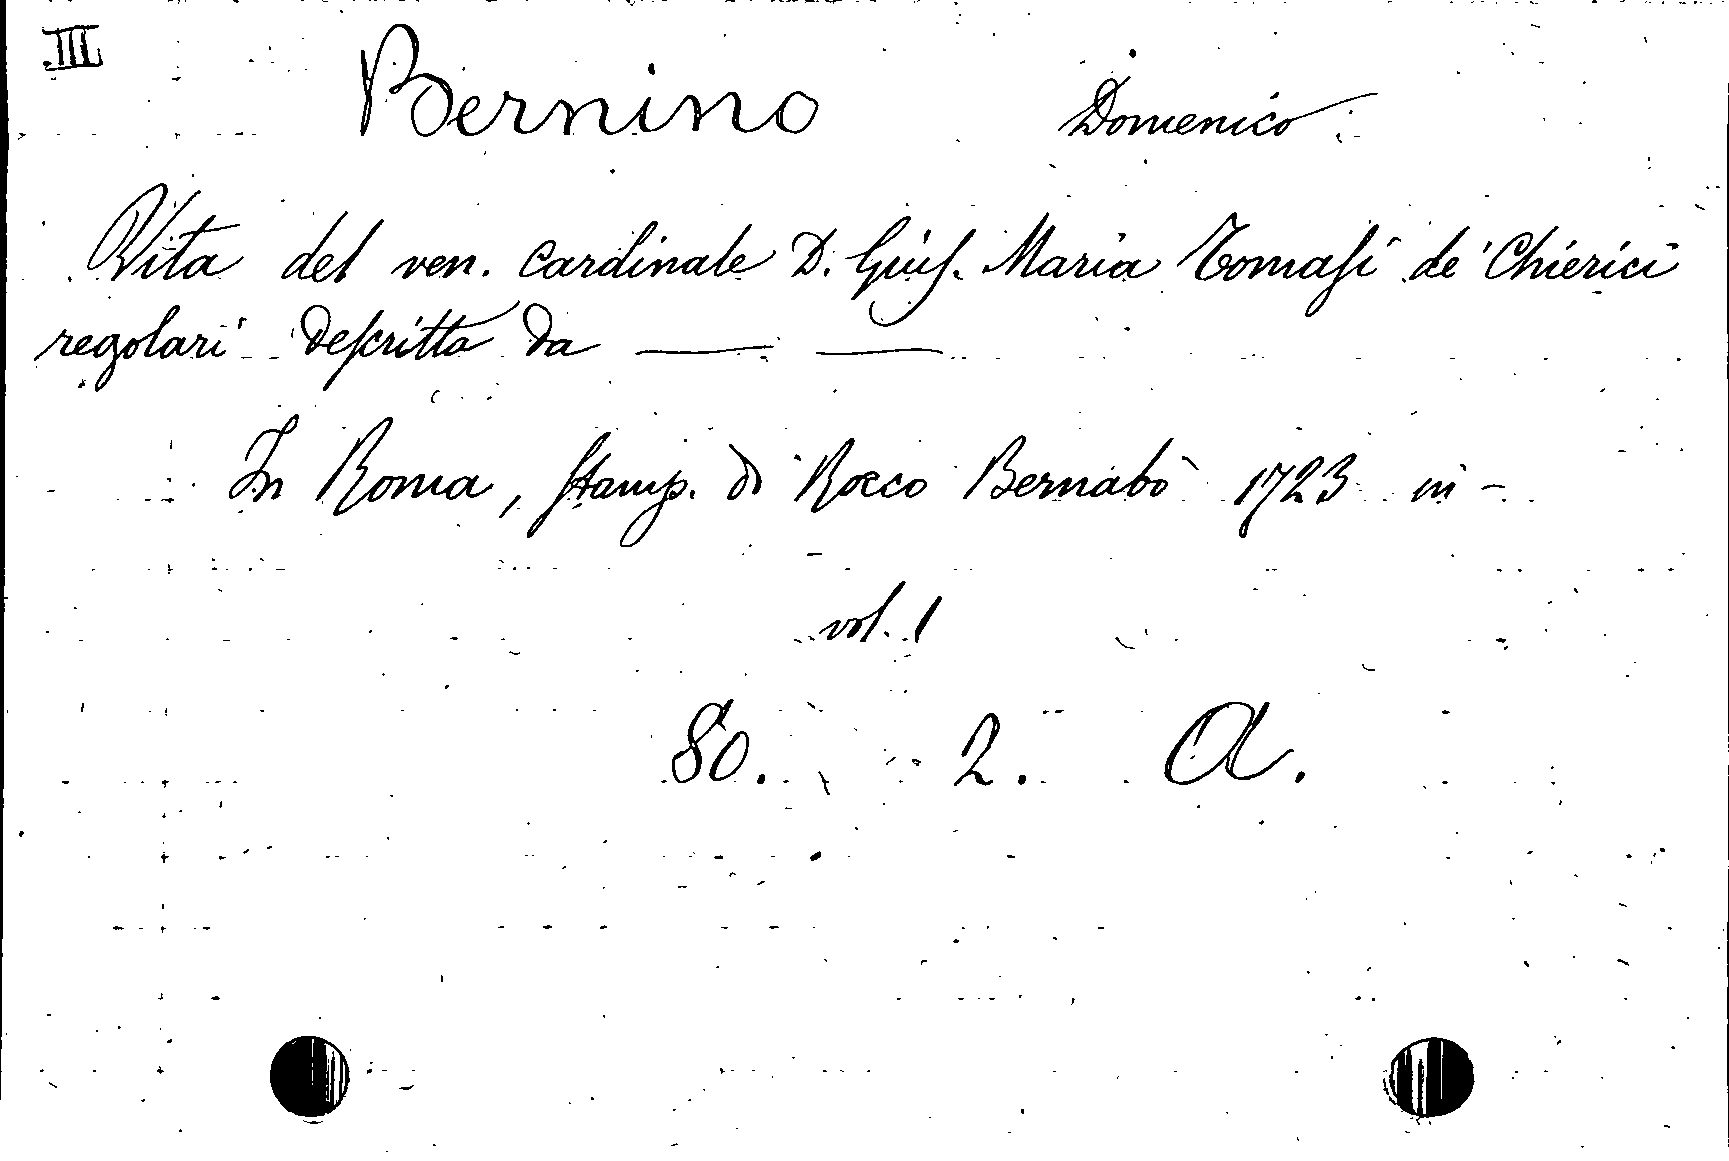 III
Bernino Domenico
Vita del ven. Cardinale D. Giuſ. Maria Tomaſi de' Chierici
regolari deſcritta da ——— ———
In Roma, ſtamp. di Rocco Bernabò 1723 in -
vol. 1
80. 2. A.